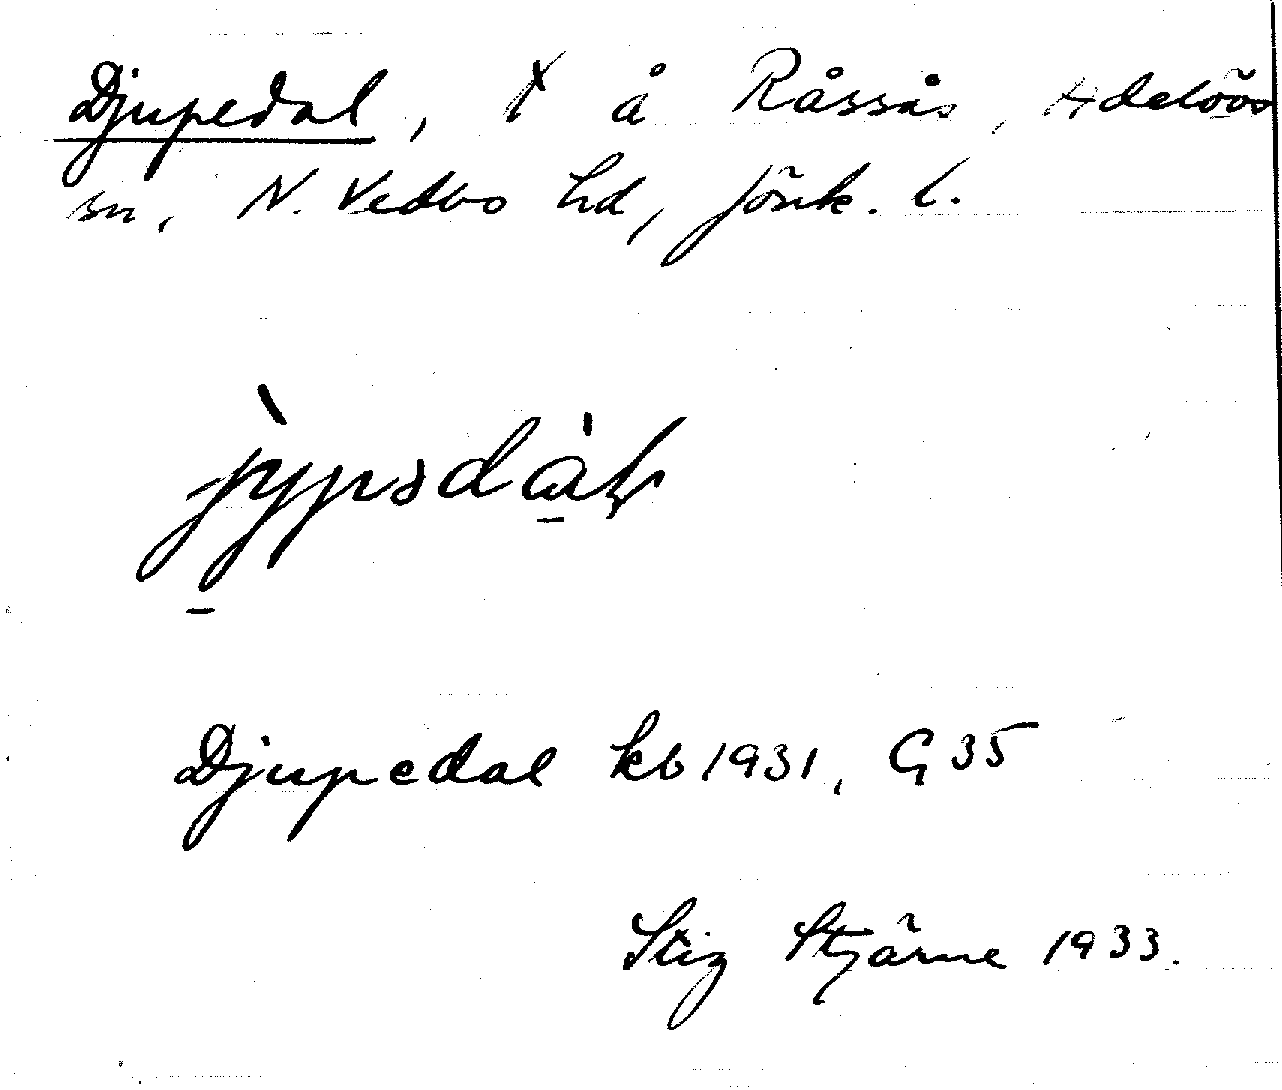 Djupedal, X å Råssås, Adelövs
sn, N. Vedbo hd, Jönk. l.
jỳpədàɫ
Djupedal kb 1931, G 35
Stig Stjärne 1933.